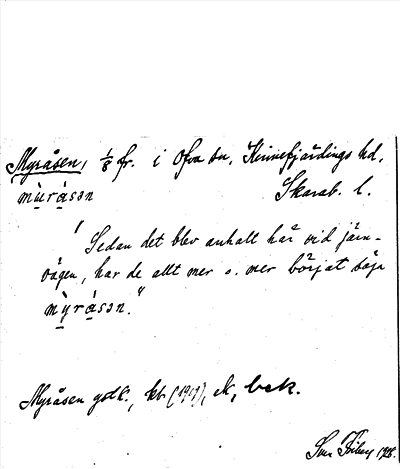 Myråsen, 1/8 fr. i Ova sn, Kinnefjärdings hd,
mùrásən Skarab. l.
"Sedan det blev anhalt här vid järn-
vägen, har de allt mer o. mer börjat säga
mỳrásən."
Myråsen godk., kb (1919), ek, bek.